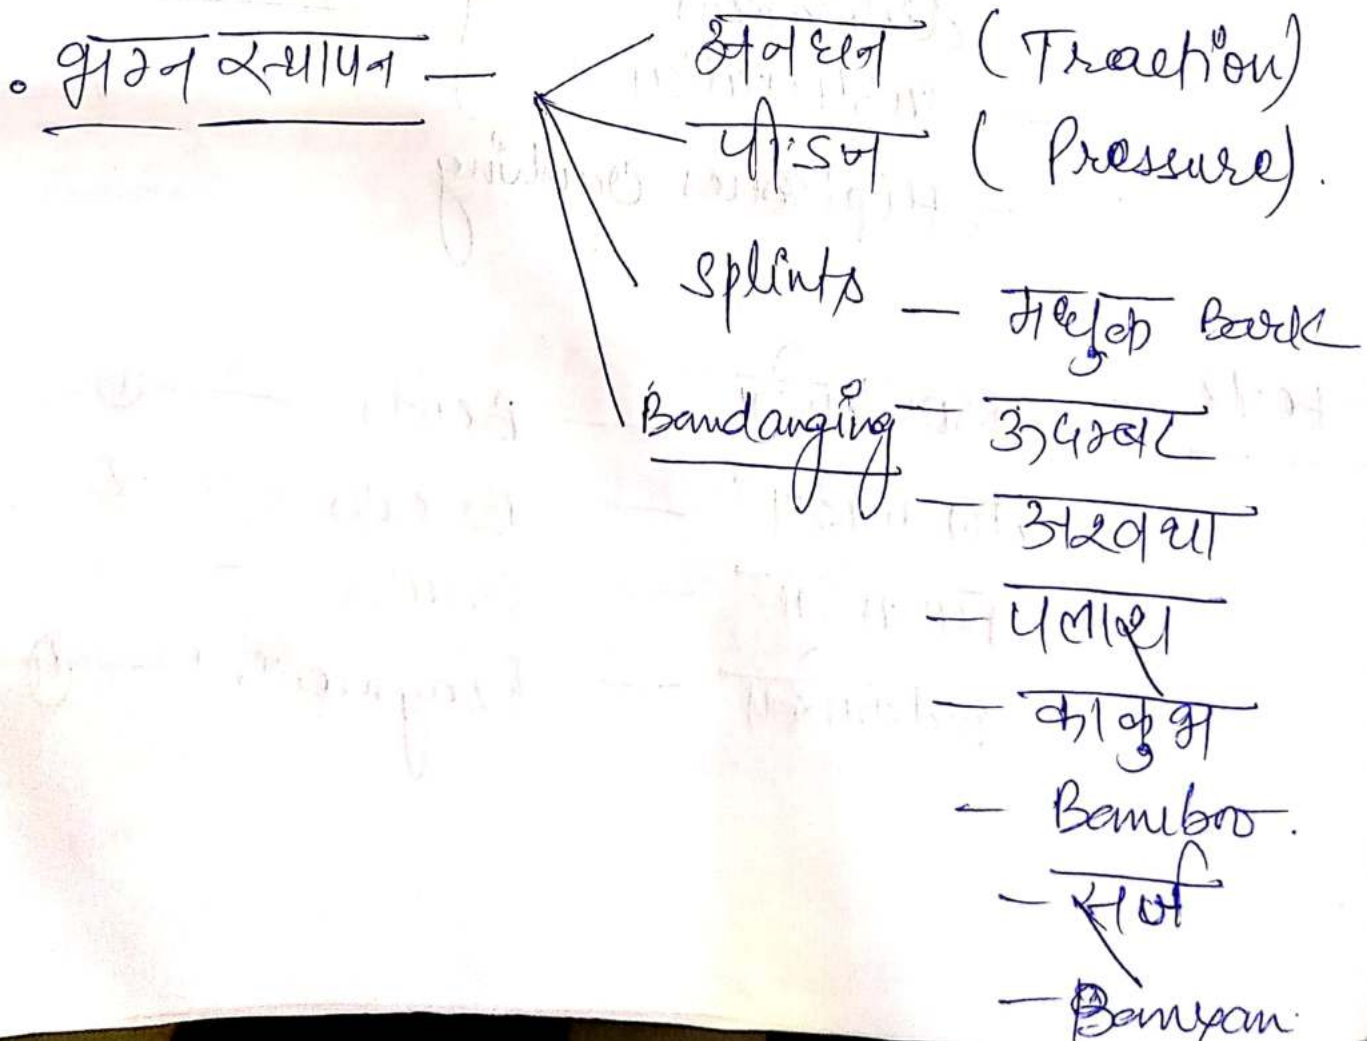 • भग्न स्थापन —
अनधन (Traction)
पीडन (Pressure).
Splints — मधुक Bark
Bandanging — उदम्बर
— अश्वथा
— पलाश
— काकुभ
— Bamboo.
— सर्ज
— Banyan.